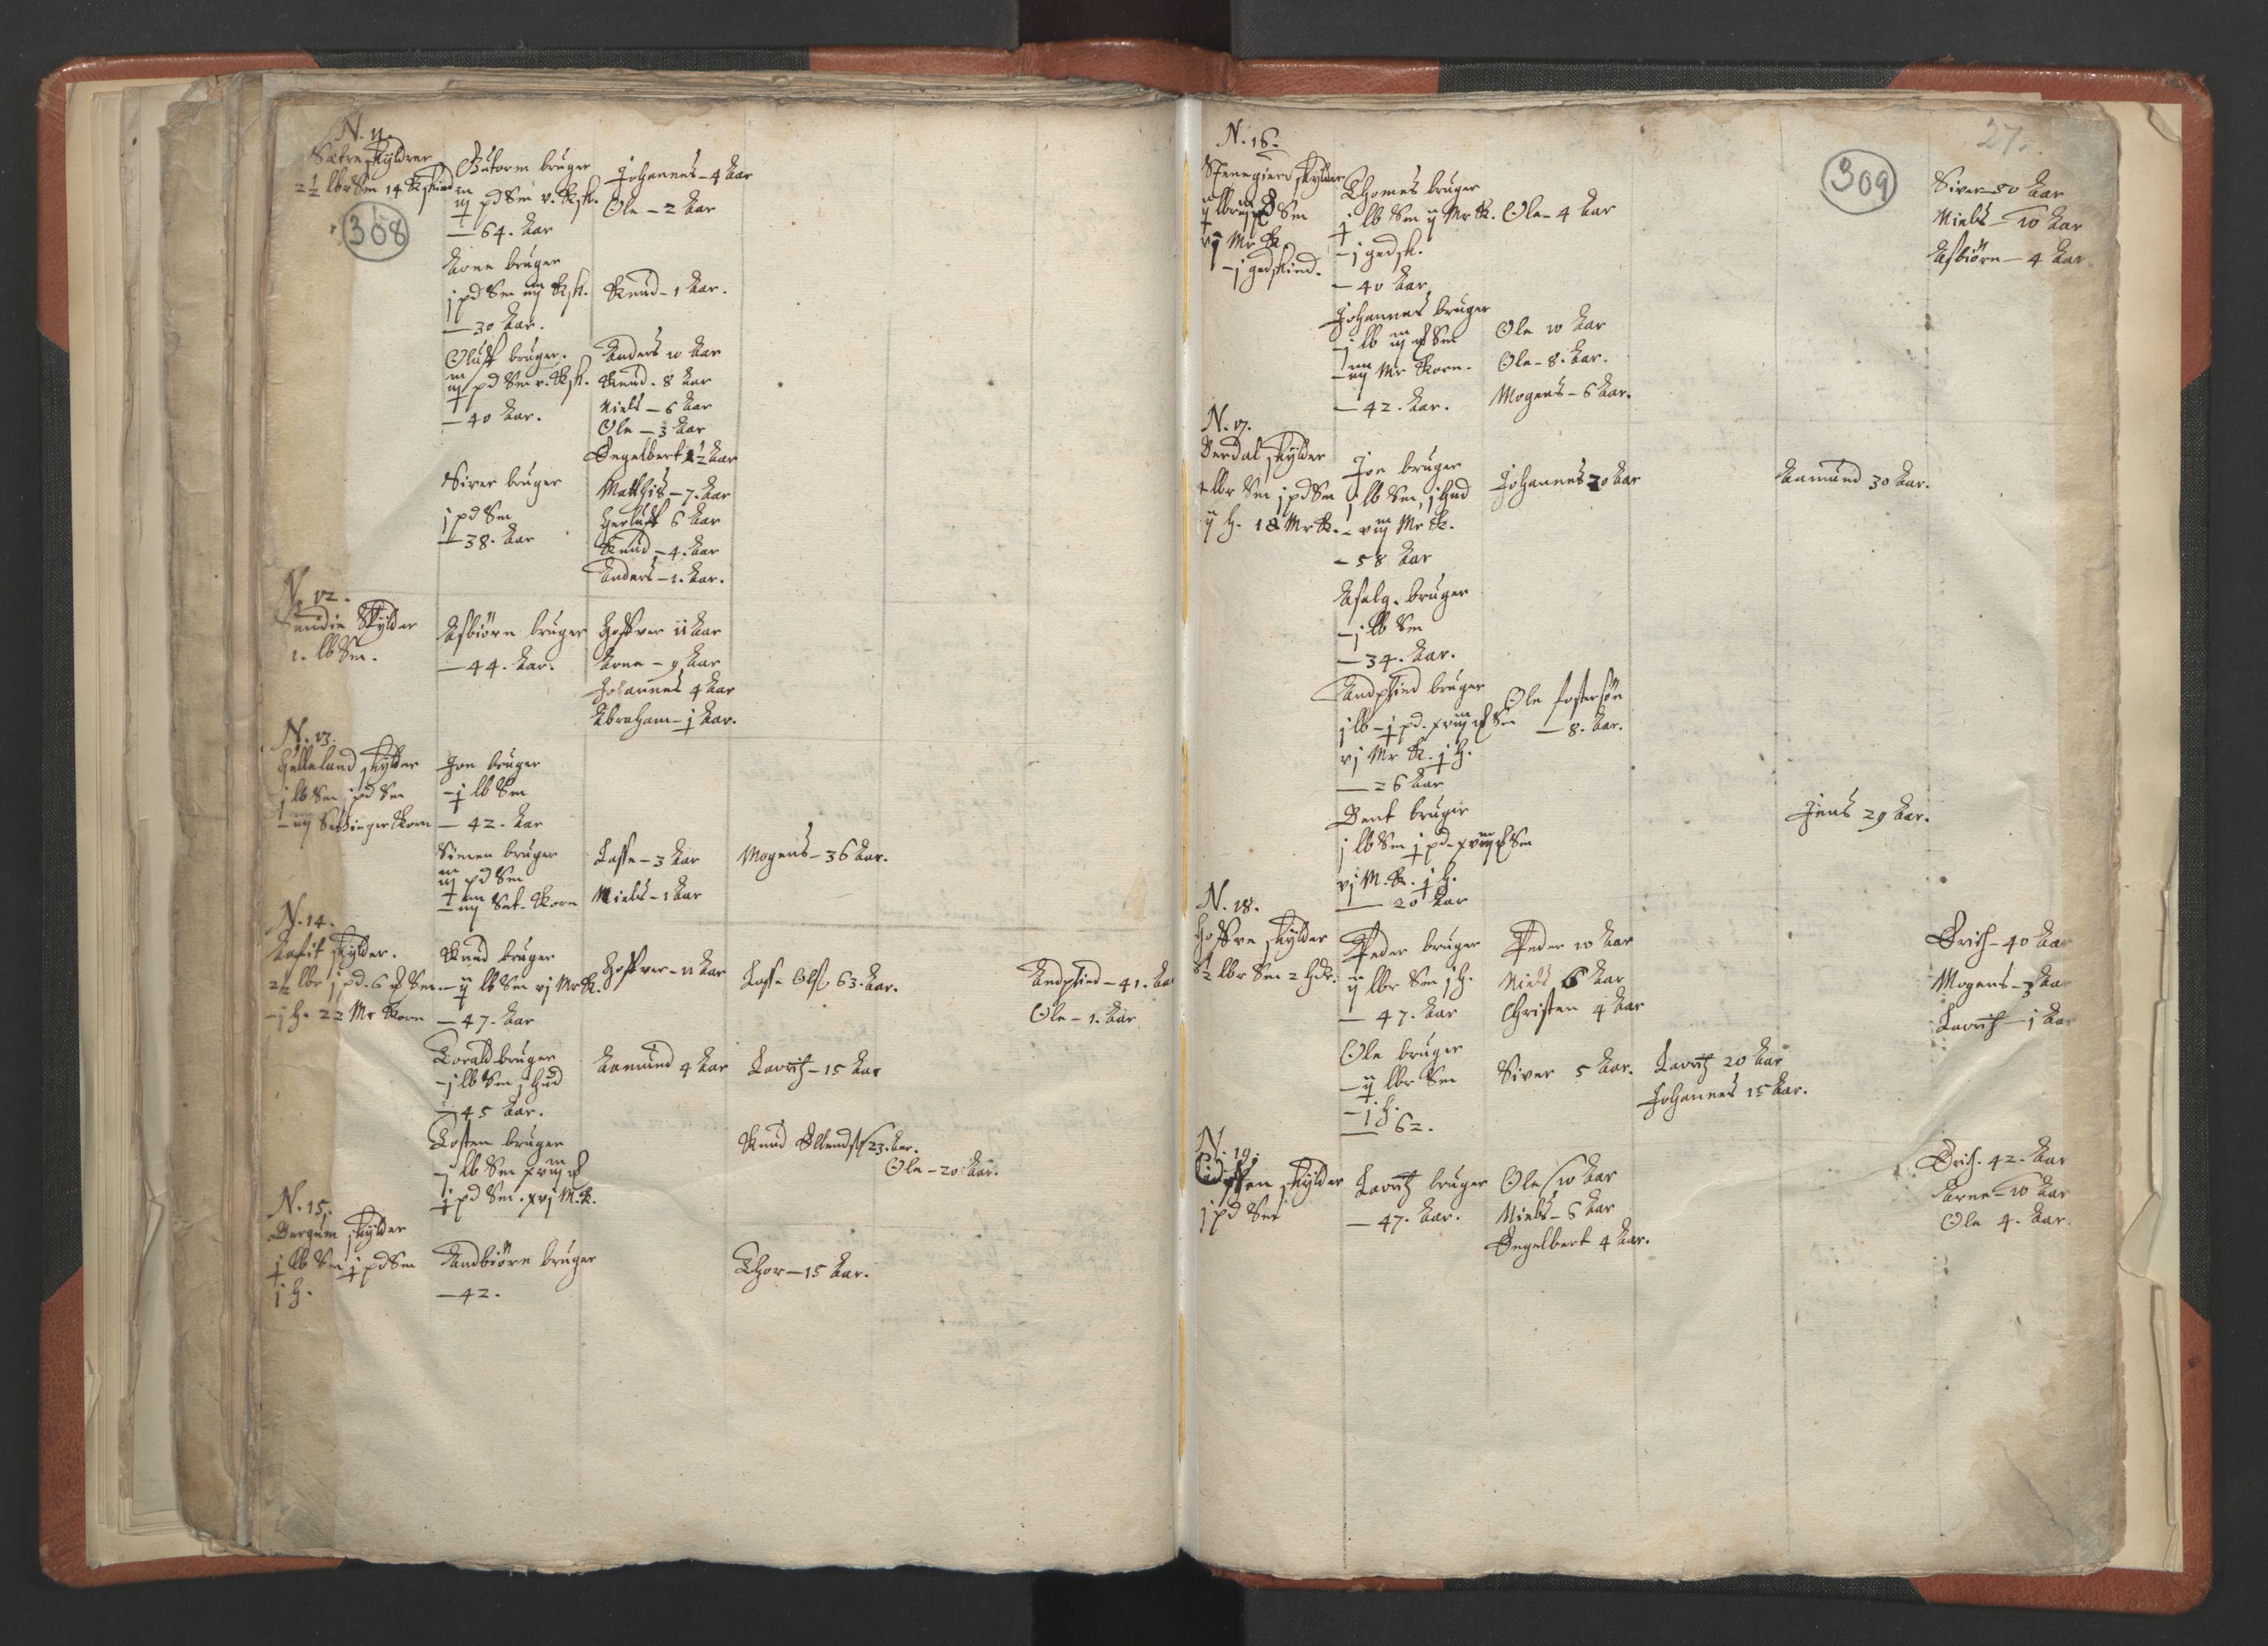 N. 11.
Sætre skylder
2½ lbr Sm 14 k skind
308
Gutorm bruger
iij pd Sm v. k sk.
— 64. Aar
Johannes – 4 Aar
Ole – 2 Aar
Arne bruger
j pd Sm iiij k sk.
— 30 Aar.
Knud – 1 Aar.
Oluff bruger.
iij pd Sm v. k sk.
— 40 Aar.
Anders 10 Aar
Knud. 8 Aar
Niels – 6 Aar
Ole – 3 Aar
Engelbert 1½ Aar
Siver bruger
j pd Sm
— 38. Aar
Matthis – 7. Aar
Herluff 6 Aar
Knud – 4. Aar
Anders – 1. Aar.
N. 12.
Skylder
1. lb Sm.
Asbiørn bruger
— 44. Aar.
Hoffver 11 Aar
Arne – 9 Aar
Johannes 4 Aar
Abraham – j Aar.
N. 13.
Helleland skylder
j lb Sm j pd Sm
– iiij Settinger Korn
Jon bruger
– j lb Sm
— 42. Aar
Simen bruger
iij pd Sm
– iiij Set. Korn
Lasse – 3 Aar
Niels – 1 Aar
Mogens – 36 Aar.
N. 14.
skylder.
2½ lbr j pd. 6 Sm.
– j h. 22 Mr Korn
Knud bruger
– ij lb Sm vj Mr K.
— 47. Aar
Hoffver – 11 Aar
Lasse Ols. 63. Aar.
Andphind – 41. Aar
Ole – 1. Aar
Torald bruger
– j lb Sm j hud
— 45 Aar.
Aamund 4 Aar
Lauritz – 15 Aar
Tosten bruger
– j lb Sm xviij
j pd Sm. xvj M. K.
Knud Ellends. 23. Aar.
Ole – 20 Aar.
N. 15.
Bergum skylder
j lb Sm j pd Sm
j h.
Andbiørn bruger
— 42.
Thor – 15 Aar.
N. 16.
27.
309
Stenegierd skylder
Sm
vj Mr K
– j gedskind.
Thomes bruger
j lb Sm ij Mr K.
– j gedsk.
— 40 Aar
Ole – 4 Aar
Siver – 50 Aar
Niels – 10 Aar
Asbiørn – 4 Aar
Johannes bruger
– j lb iij Sm
– iiij Mr Korn.
— 42. Aar.
Ole 10 Aar
Ole – 8. Aar.
Mogens – 6 Aar.
N. 17.
Berdal skylder
4 lbr Sm j pd Sm
ij h. 18 Mr K.
Jon bruger
j lb Sm, j hud
– viij Mr K.
– 58 Aar
Johannes 20 Aar
Aamund 30 Aar.
Aslag. bruger
– j lb Sm
— 34. Aar.
Andphind bruger
j lb – j pd. xviij Sm
vj Mr K. j h.
— 26 Aar
Ole fostersøn
— 8. Aar.
Bent bruger
j lb Sm j pd – xviij Sm
vj M. K. j h.
— 20 Aar
Jens 29 Aar.
N. 18.
Hoffve skylder
lbr Sm 2 hdr.
Peder bruger
ij lbr Sm j h.
— 47. Aar
Peder 10 Aar
Niels 6 Aar
Christen 4 Aar
Erich – 40 Aar
Mogens – 3 Aar
Lauritz – j Aar
Ole bruger
– ij lbr Sm
– j h.
— 62.
Siver 5 Aar.
Lauritz 20 Aar
Johannes 15 Aar.
N. 19.
skylder
j pd Sm
Lauritz bruger
— 47. Aar.
Ole 10 Aar
Niels – 6 Aar
Engelbert 4 Aar.
Erich. 42. Aar
Arne – 10 Aar
Ole 4. Aar.